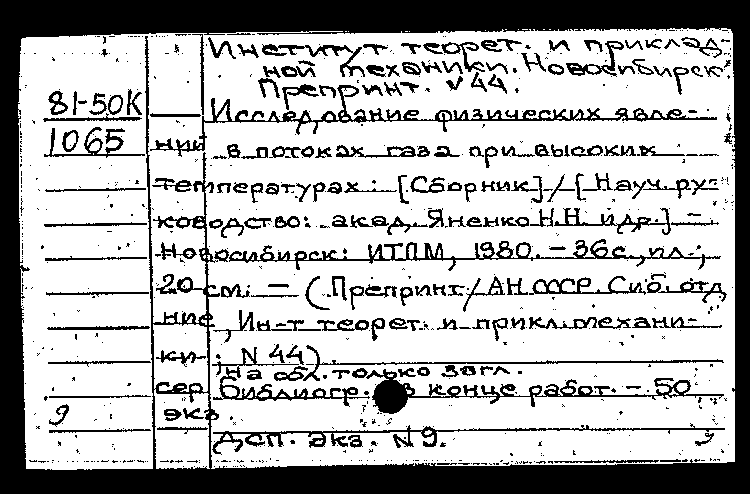 Институт теорет. и приклад-
ной механики. Новосибирск.
Препринт. № 44.
81-50К Исследование физических явле-
1065 ний в потоках газа при высоких
температурах: [Сборник] / [Науч. ру-
ководство: акад. Яненко Н.Н. и др.] -
Новосибирск: ИТПМ, 1980. - 36 с., ил.;
20 см. - (Препринт / АН СССР. Сиб. отд
ние, Ин-т теорет. и прикл. механи-
ки; N 44).
На обл. только загл.
сер Библиогр. в конце работ. - 50
9 экз.
Доп. экз. N 9. 9